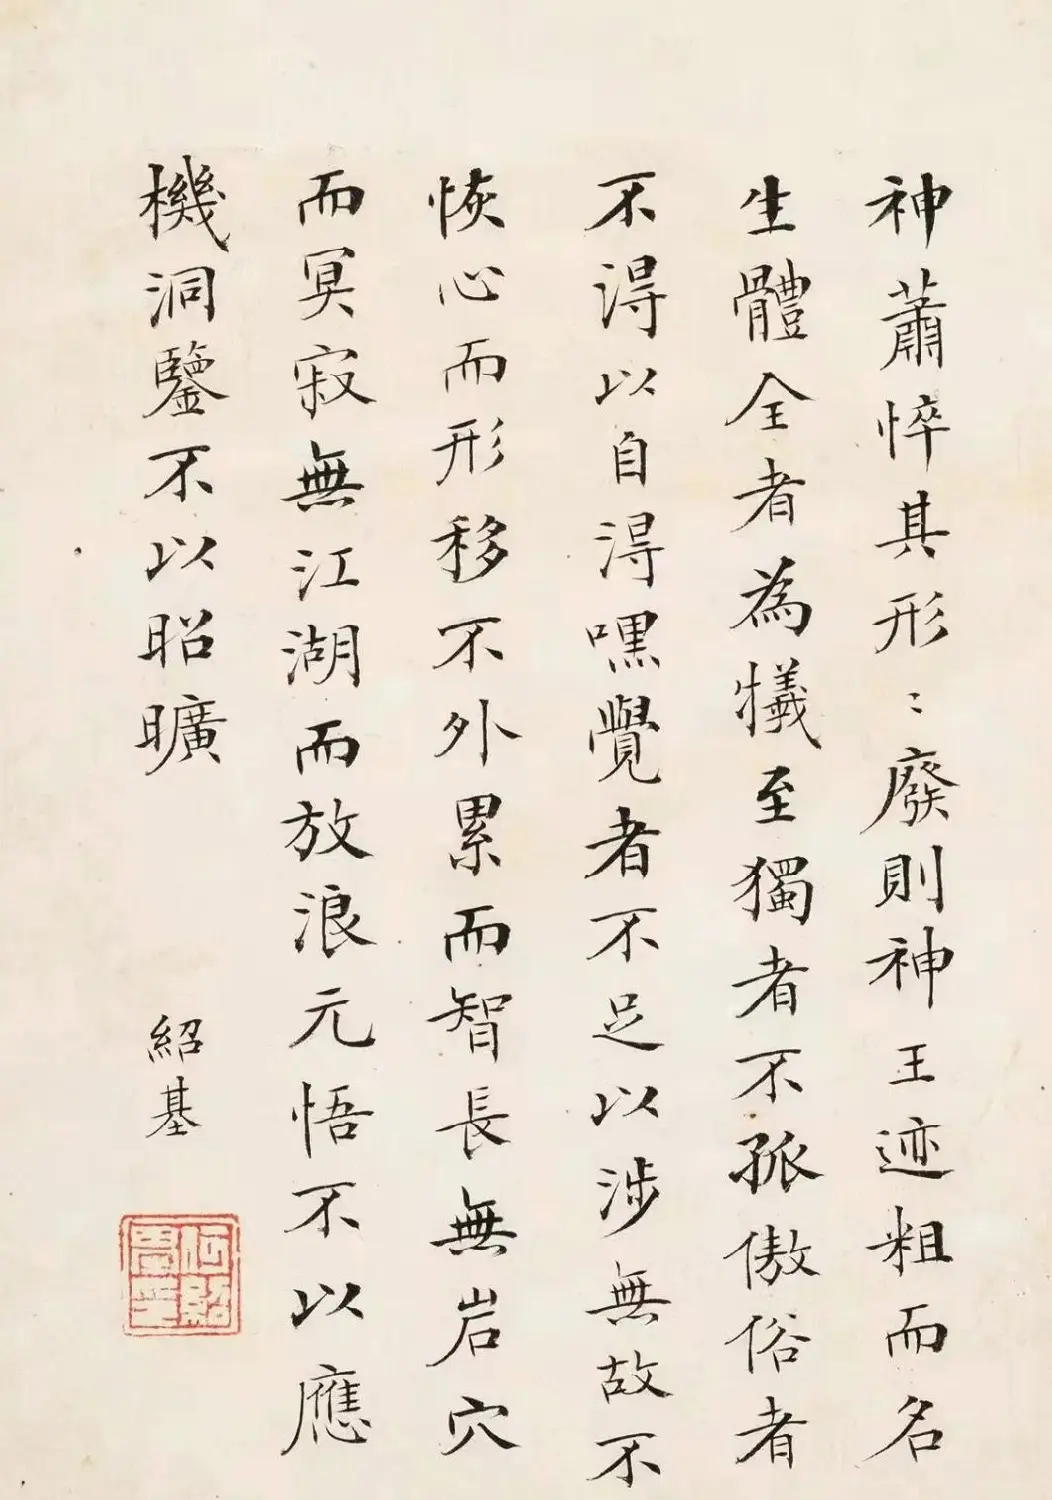 神蕭悴其形〻廢則神王迹粗而名
生體全者為犧至獨者不孤傲俗者
不淂以自淂嘿覺者不足以涉無故不
恢心而形移不外累而智長無岩穴
而冥寂無江湖而放浪元悟不以應
機洞鑒不以昭曠
紹基
何紹基印